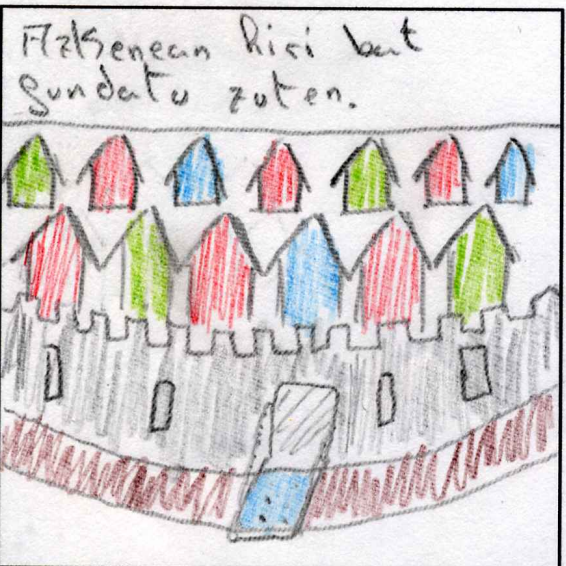 Azkenean hiri bat
sundatu zuten.